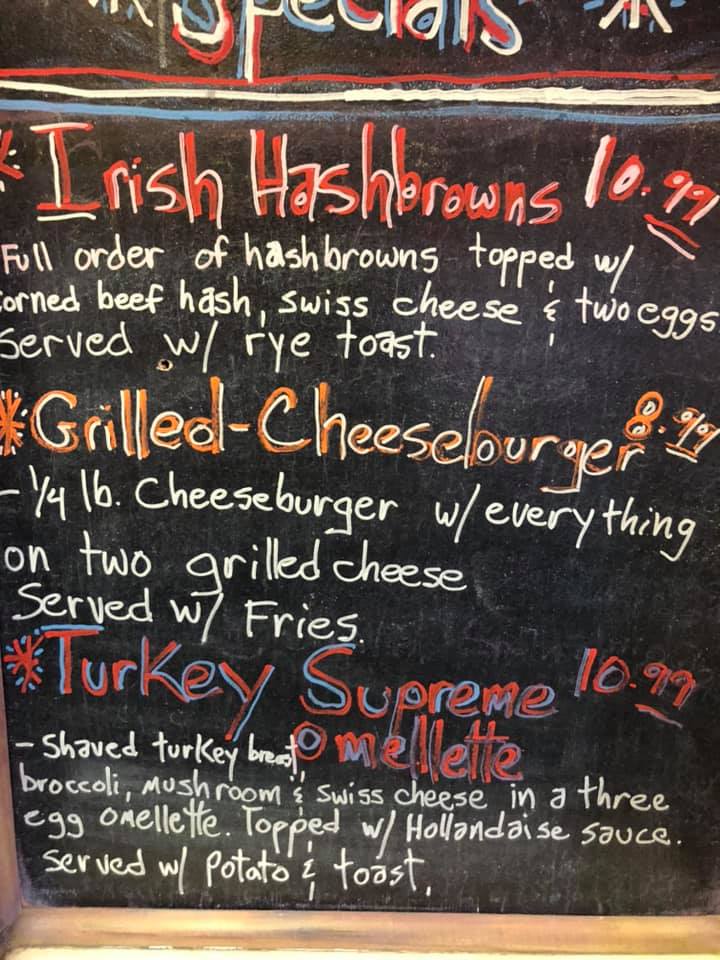 Specials
* Irish Hashbrowns 10.99
Full order of hashbrowns topped w/
corned beef hash, swiss cheese & two eggs
Served w/ rye toast.
* Grilled-Cheeseburger 8.99
- 1/4 lb. Cheeseburger w/ everything
on two grilled cheese
Served w/ Fries.
* Turkey Supreme 10.99
Omellette
- Shaved turkey breast,
broccoli, mushroom & swiss cheese in a three
egg omellette. Topped w/ Hollandaise sauce.
Served w/ potato & toast.